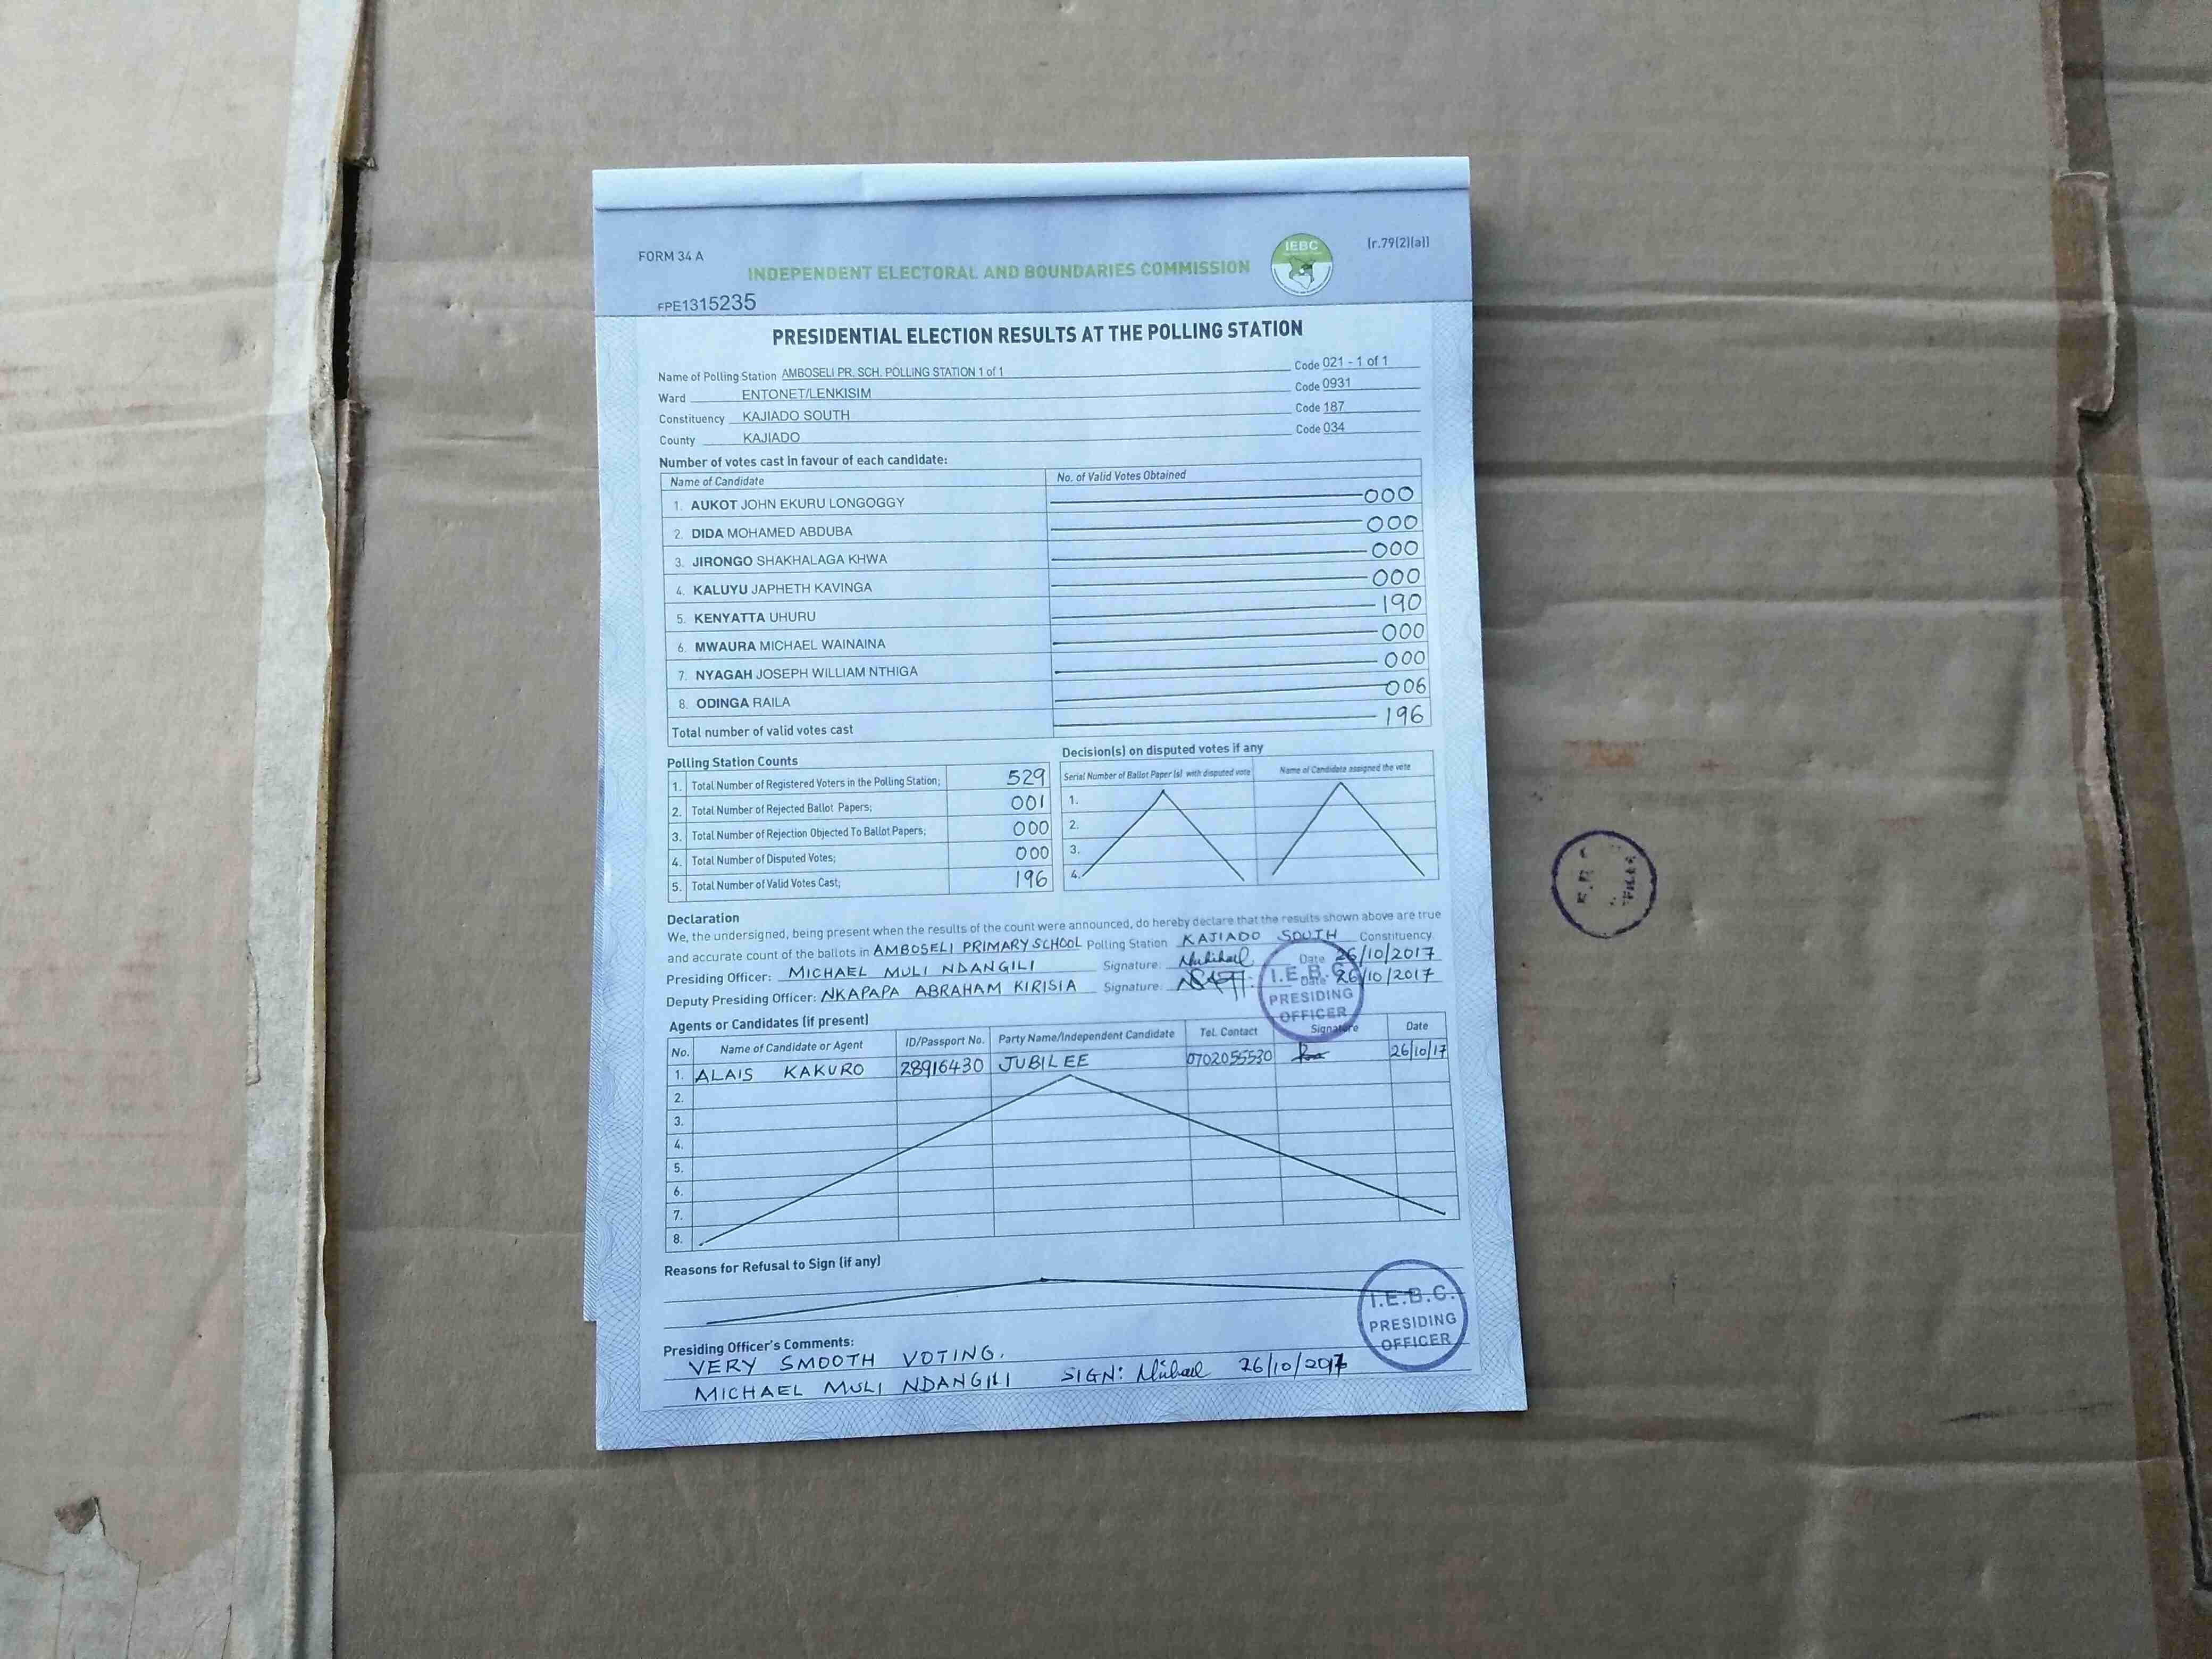 FORM 34 A
IEBC
(r.79(2)(a))
INDEPENDENT ELECTORAL AND BOUNDARIES COMMISSION
FPE1315235
PRESIDENTIAL ELECTION RESULTS AT THE POLLING STATION
Name of Polling Station AMBOSELI PR. SCH. POLLING STATION 1 of 1 Code 021 - 1 of 1
Ward ENTONET/LENKISIM Code 0931
Constituency KAJIADO SOUTH Code 187
County KAJIADO Code 034
Number of votes cast in favour of each candidate:
Name of Candidate No. of Valid Votes Obtained
1. AUKOT JOHN EKURU LONGOGGY 000
2. DIDA MOHAMED ABDUBA 000
3. JIRONGO SHAKHALAGA KHWA 000
4. KALUYU JAPHETH KAVINGA 000
5. KENYATTA UHURU 190
6. MWAURA MICHAEL WAINAINA 000
7. NYAGAH JOSEPH WILLIAM NTHIGA 000
8. ODINGA RAILA 006
Total number of valid votes cast 196
Polling Station Counts
1. Total Number of Registered Voters in the Polling Station; 529
2. Total Number of Rejected Ballot Papers; 001
3. Total Number of Rejection Objected To Ballot Papers; 000
4. Total Number of Disputed Votes; 000
5. Total Number of Valid Votes Cast; 196
Decision(s) on disputed votes if any
Serial Number of Ballot Paper (s) with disputed vote Name of Candidate assigned the vote
1.
2.
3.
4.
Declaration
We, the undersigned, being present when the results of the count were announced, do hereby declare that the results shown above are true
and accurate count of the ballots in AMBOSELI PRIMARY SCHOOL Polling Station KAJIADO SOUTH Constituency.
Presiding Officer: MICHAEL MULI NDANGILI Signature: Date 26/10/2017
Deputy Presiding Officer: NKAPAPA ABRAHAM KIRISIA Signature: Date 26/10/2017
I.E.B.C
PRESIDING
OFFICER
Agents or Candidates (if present)
No. Name of Candidate or Agent ID/Passport No. Party Name/Independent Candidate Tel. Contact Signature Date
1. ALAIS KAKURO 28916430 JUBILEE 0702055530 26/10/17
2.
3.
4.
5.
6.
7.
8.
Reasons for Refusal to Sign (if any)
I.E.B.C.
PRESIDING
OFFICER
Presiding Officer's Comments:
VERY SMOOTH VOTING.
MICHAEL MULI NDANGILI SIGN: Michael 26/10/2017